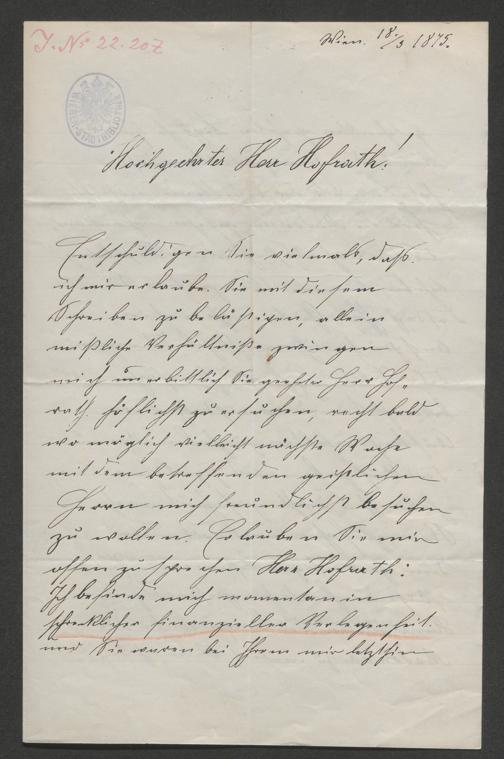 J. Nº 22.207
Wien. 18./3 1875.
Hochgeehrter Herr Hofrath!
Entschuldigen Sie vielmals, daß
ich mir erlaube. Sie mit diesem
Schreiben zu belästigen, allein
mißliche Verhältniße zwingen
mich unerbittlich Sie geehrter Herr Hof-
rath. höflichst zu ersuchen, recht bald
wo möglich vielleicht nächste Woche
mit dem betreffenden geistlichen
Herrn mich freundlichst besuchen
zu wollen. Erlauben Sie mir
offen zu sprechen Herr Hofrath:
Ich befinde mich momentan in
schreklicher finanzieller Verlegenheit.
und Sie waren bei Ihrem mir letzthin